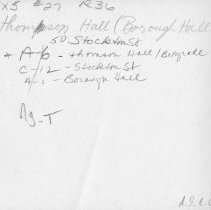 X5 #27 R36
Thompson Hall (Borough Hall
50 Stockton St
* A-6 - Thomson Hall/
C-12 - Stockton St
A-1 - Borough Hall